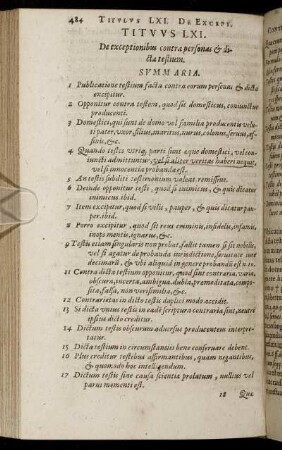 484 TITVLVS LXI. DE EXCEPT.
TITVVS LXI.
De exceptionibus contra personas & di-
cta testium.
SVMMARIA.
1 Publicatione testium facta contra eorum personas & dicta
excipitur.
2 Opponitur contra testem, quod sit domesticus, coniunctus
producenti.
3 Domestici, qui sunt de domo vel familia producentis velu-
ti pater, vxor, filius, maritus, nurus, colonus, seruus, af-
finis, &c.
4 Quando testis vtriq; parti sunt aque domestici, vel con-
iuncti admittuntur, vel si aliter veritas haberi nequit,
vel si innocentia probanda est.
5 Arctè subditi testimonium valere remissiue.
6 Deinde opponitur testi, quod sit inimicus, & quis dicatur
inimicus ibid.
7 Item excipitur, quod sit vilis, pauper, & quis dicatur pau-
per. ibid.
8 Porro excipitur, quod sit reus criminis, infidelis, infamis,
inops mentis, ignarus, &c.
9 Testis etiam singularis non probat, facta tamen si sit nobilis,
vel si agatur de probanda iurisdictione, seruitute
decimarũ, & vbi aliquid in genere probandũ est n. 10.
11 Contra dicta testium opponitur, quod sint contraria, varia,
obscura, incerta, ambigua, dubia, præmeditata, compo-
sita, falsa, non verisimilia, &c.
12 Contrarietas in dicto testis duplici modo accidit.
13 Si dicta vnius testis in eadẽ scriptura contraria sint, neutri
ipsius dicto creditur.
14 Dictum testis obscurum aduersus producentem interpre-
tatur.
15 Dicta testium in circumstantiis bene conseruare debent.
16 Plus creditur testibus affirmantibus, quam negantibus,
& quomodo hoc intelligendum.
17 Dictum testis sine causa scientiæ prolatum, nullius vel
parui momenti est.
18 Qua